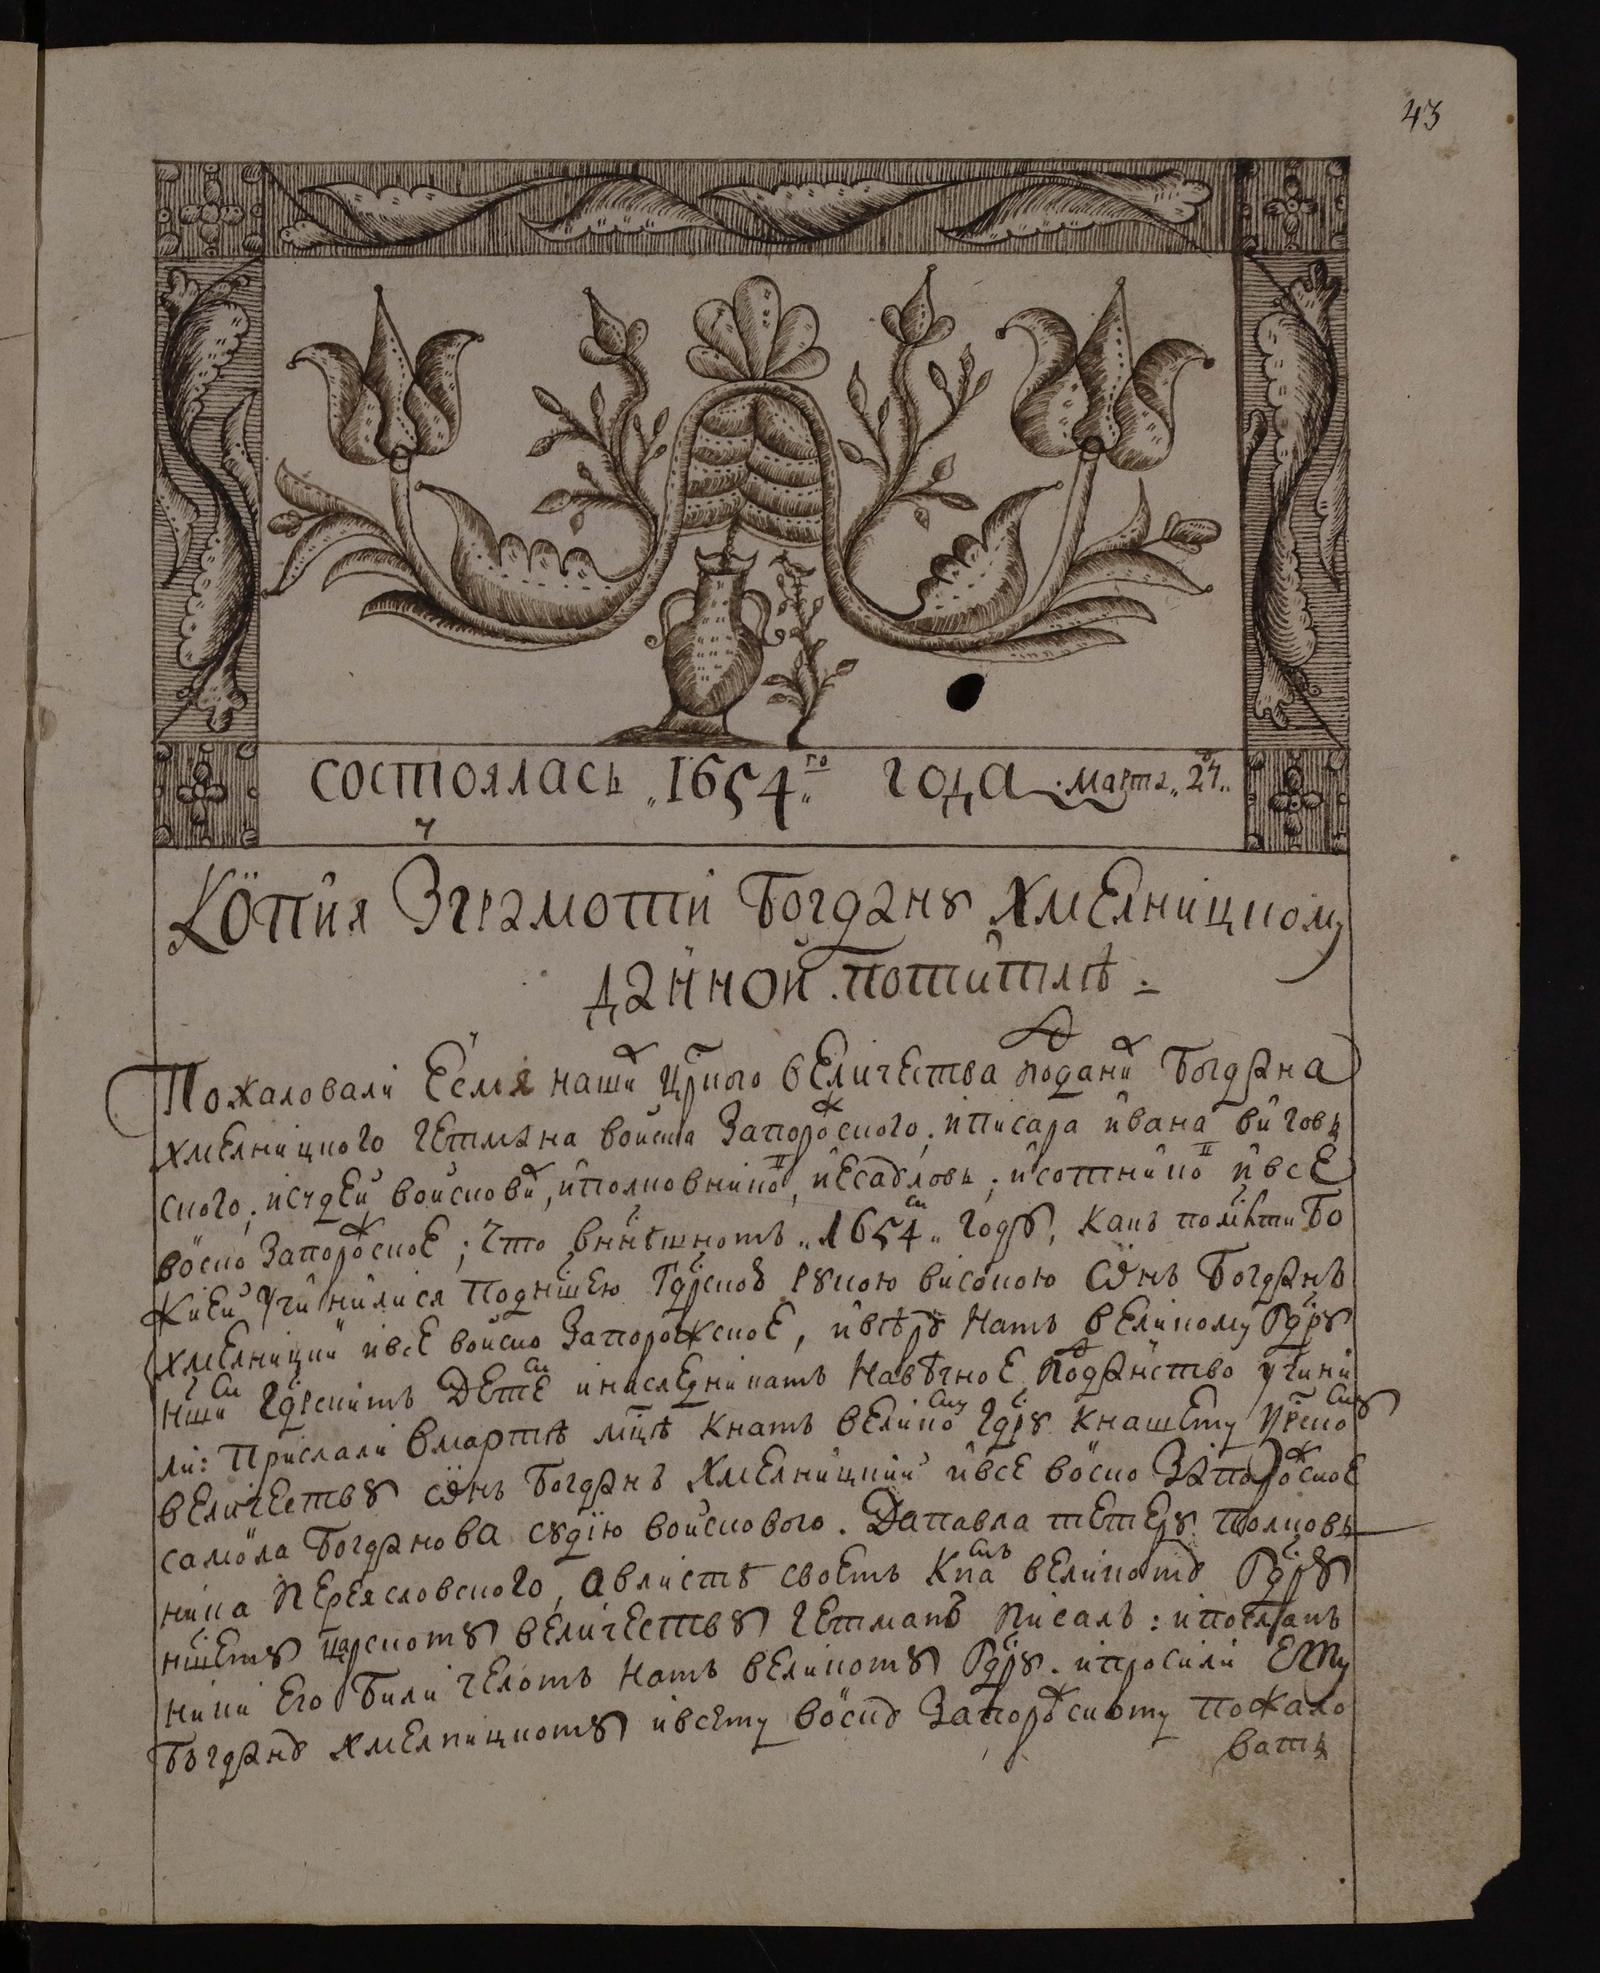 43
состоялась „1654„ го года марта „27„
Копия Зграмоти Богдану Хмелницкому
данной потитлѣ
Пожаловали Есмя наши цркого величества поданих Богдана
хмелницкого гетмана войска Запорожского, иписара ивана виговъ
ского, исудей войскових, иполковнико, иЕсаулов; исотнико ивсЕ
войско Запорожское; Что внн҃ѣшномъ „1654„ году, какъ помлсти Бо
жиеи учинилися поднш҃ею Гдрскою рукою високою Он Богданъ
хмелницкий ивсЕ войско Запорожское, ивѣру намъ великому Гдрю
нши Гдрскимъ ДетЕ инаследникамъ НавѣчноЕ подданство учини
ли: Прислали вмартѣ мц҃ѣ кнамъ велико гдрю кнашему црско
величеству Онъ Богданъ Хмелницкий ивсЕ войско ЗапорожскоЕ
самойла Богданова судию войскового. Дапавла тетерю Полковъ
ника переясловского, авлисту своемъ Кна великому Гдрю
ншему царскому величеству гетманъ писалъ: ипослан
ники его Били челомъ намъ великому Гдрю. ипросили Ему
Богдану хмелницкому ивсему войску Запорожскому пожало
вать